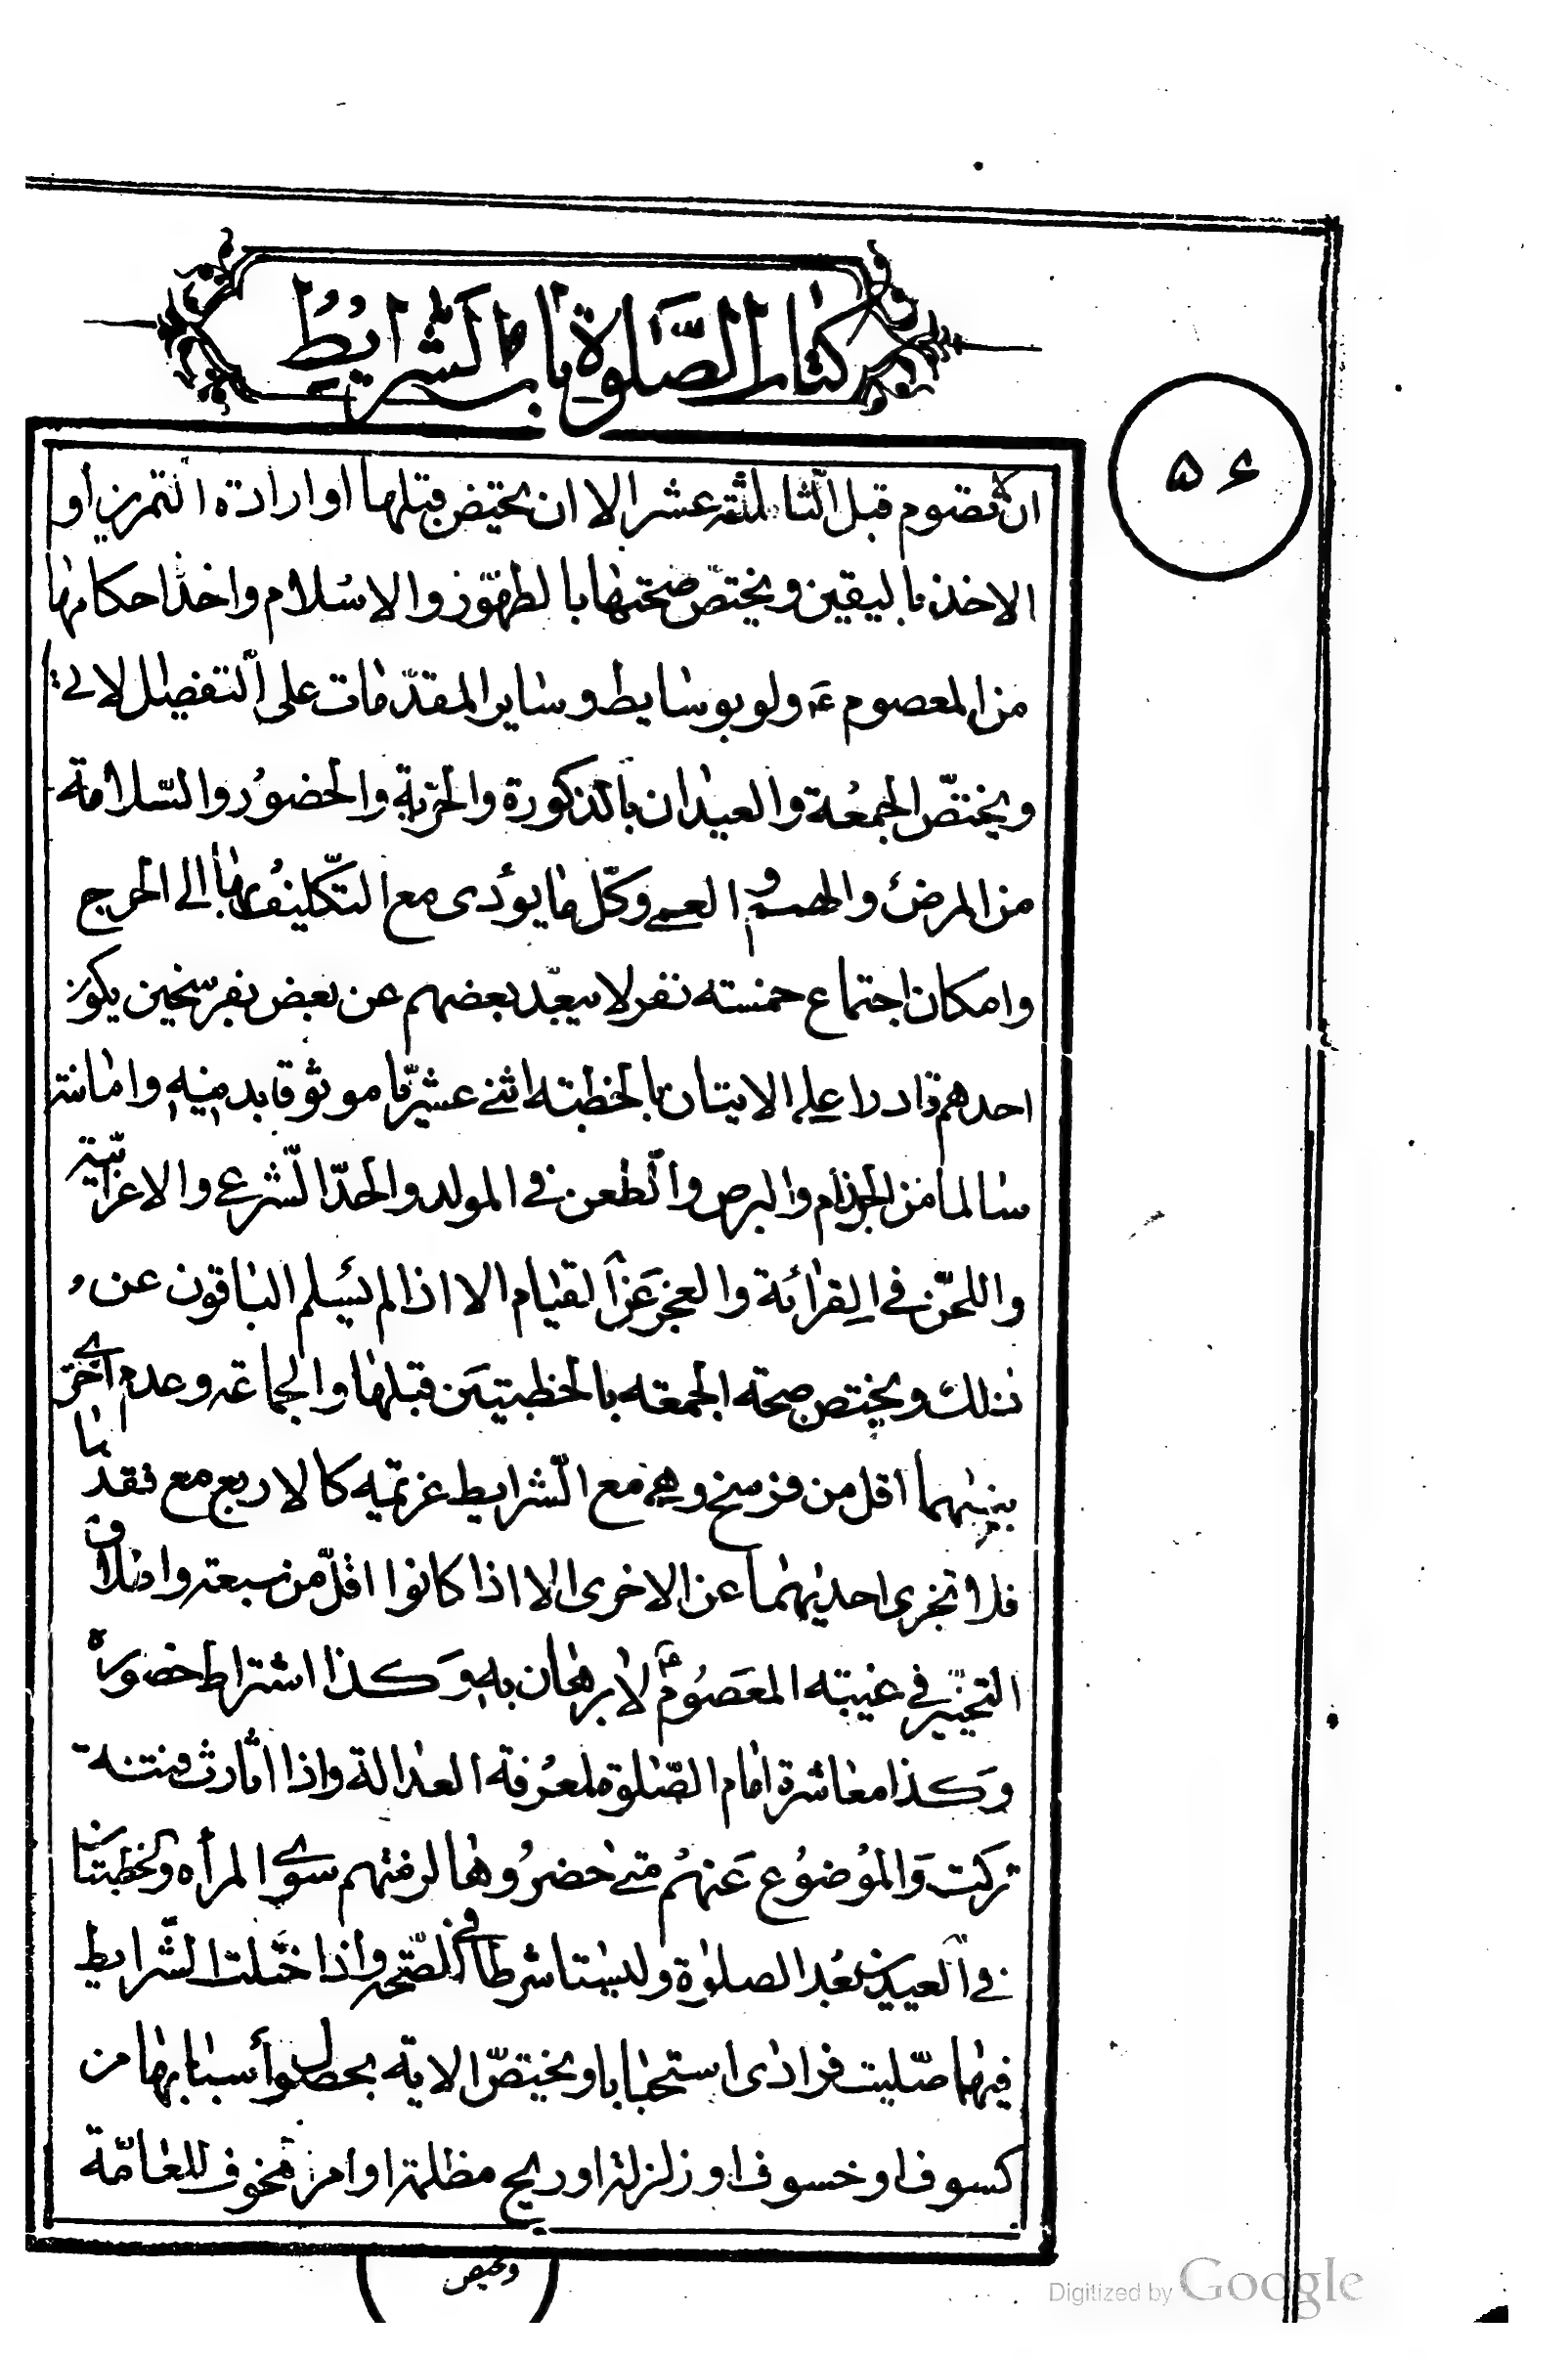 كتاب الصَّلوة باب الشرايط
۵۶
ان لا تصوم قبل الثالثة عشر الا ان تحيض قبلها او ارادة التمرين او
الاخذ باليقين ويختصّ صحتها بالطهور والاسلام واخذ احكامها
من المعصوم ع ولو بوسايط وساير المقدّمات على التفصيل الاتي
ويختصّ الجمعة والعيدان بالذكورة والحرية والحضور والسّلامة
من المرض والهم والعمى وكلّ ما يؤدى مع التكليف بها الى الحرج
وامكان اجتماع خمسة نفر لا يبعد بعضهم عن بعض بفرسخين يكون
احدهم قادرا على الاتيان بالخطبة اثنى عشريا موثوقا بدينه وامانته
سالما من الجذام والبرص والطعن في المولد والحدّ الشرعي والاعرابيّة
واللحن في القرائة والعجز عن القيام الا اذا لم يسلم الباقون عن
ذلك ويختص صحة الجمعة بالخطبتين قبلها والجماعة وعدم اخرى
بينهما اقل من فرسخ وهي مع الشرايط عزيمة كالاربع مع فقدها
فلا تجزى احديهما عن الاخرى الا اذا كانوا اقلّ من سبعة واطلاق
التخيير في غيبة المعصُوم ع لا برهان به وكذا اشتراط حضوره
وكذا معاشرة امام الصّلوة لمعرفة العدالة واذا اثارت فتنة
تركت والموضوع عنهم متى حضروها لزمتهم سوى المرأه والخطبتان
في العيدين بعد الصلوة وليستا شرطا في الصّحة واذا اختلت الشّرايط
فيهما صلّيت فرادى استحبابا ويختصّ الاية بحصول أسبابها من
كسوف او خسوف او زلزلة او ريح مظلمة او امر مخوف للعامّة
Digitized by Google